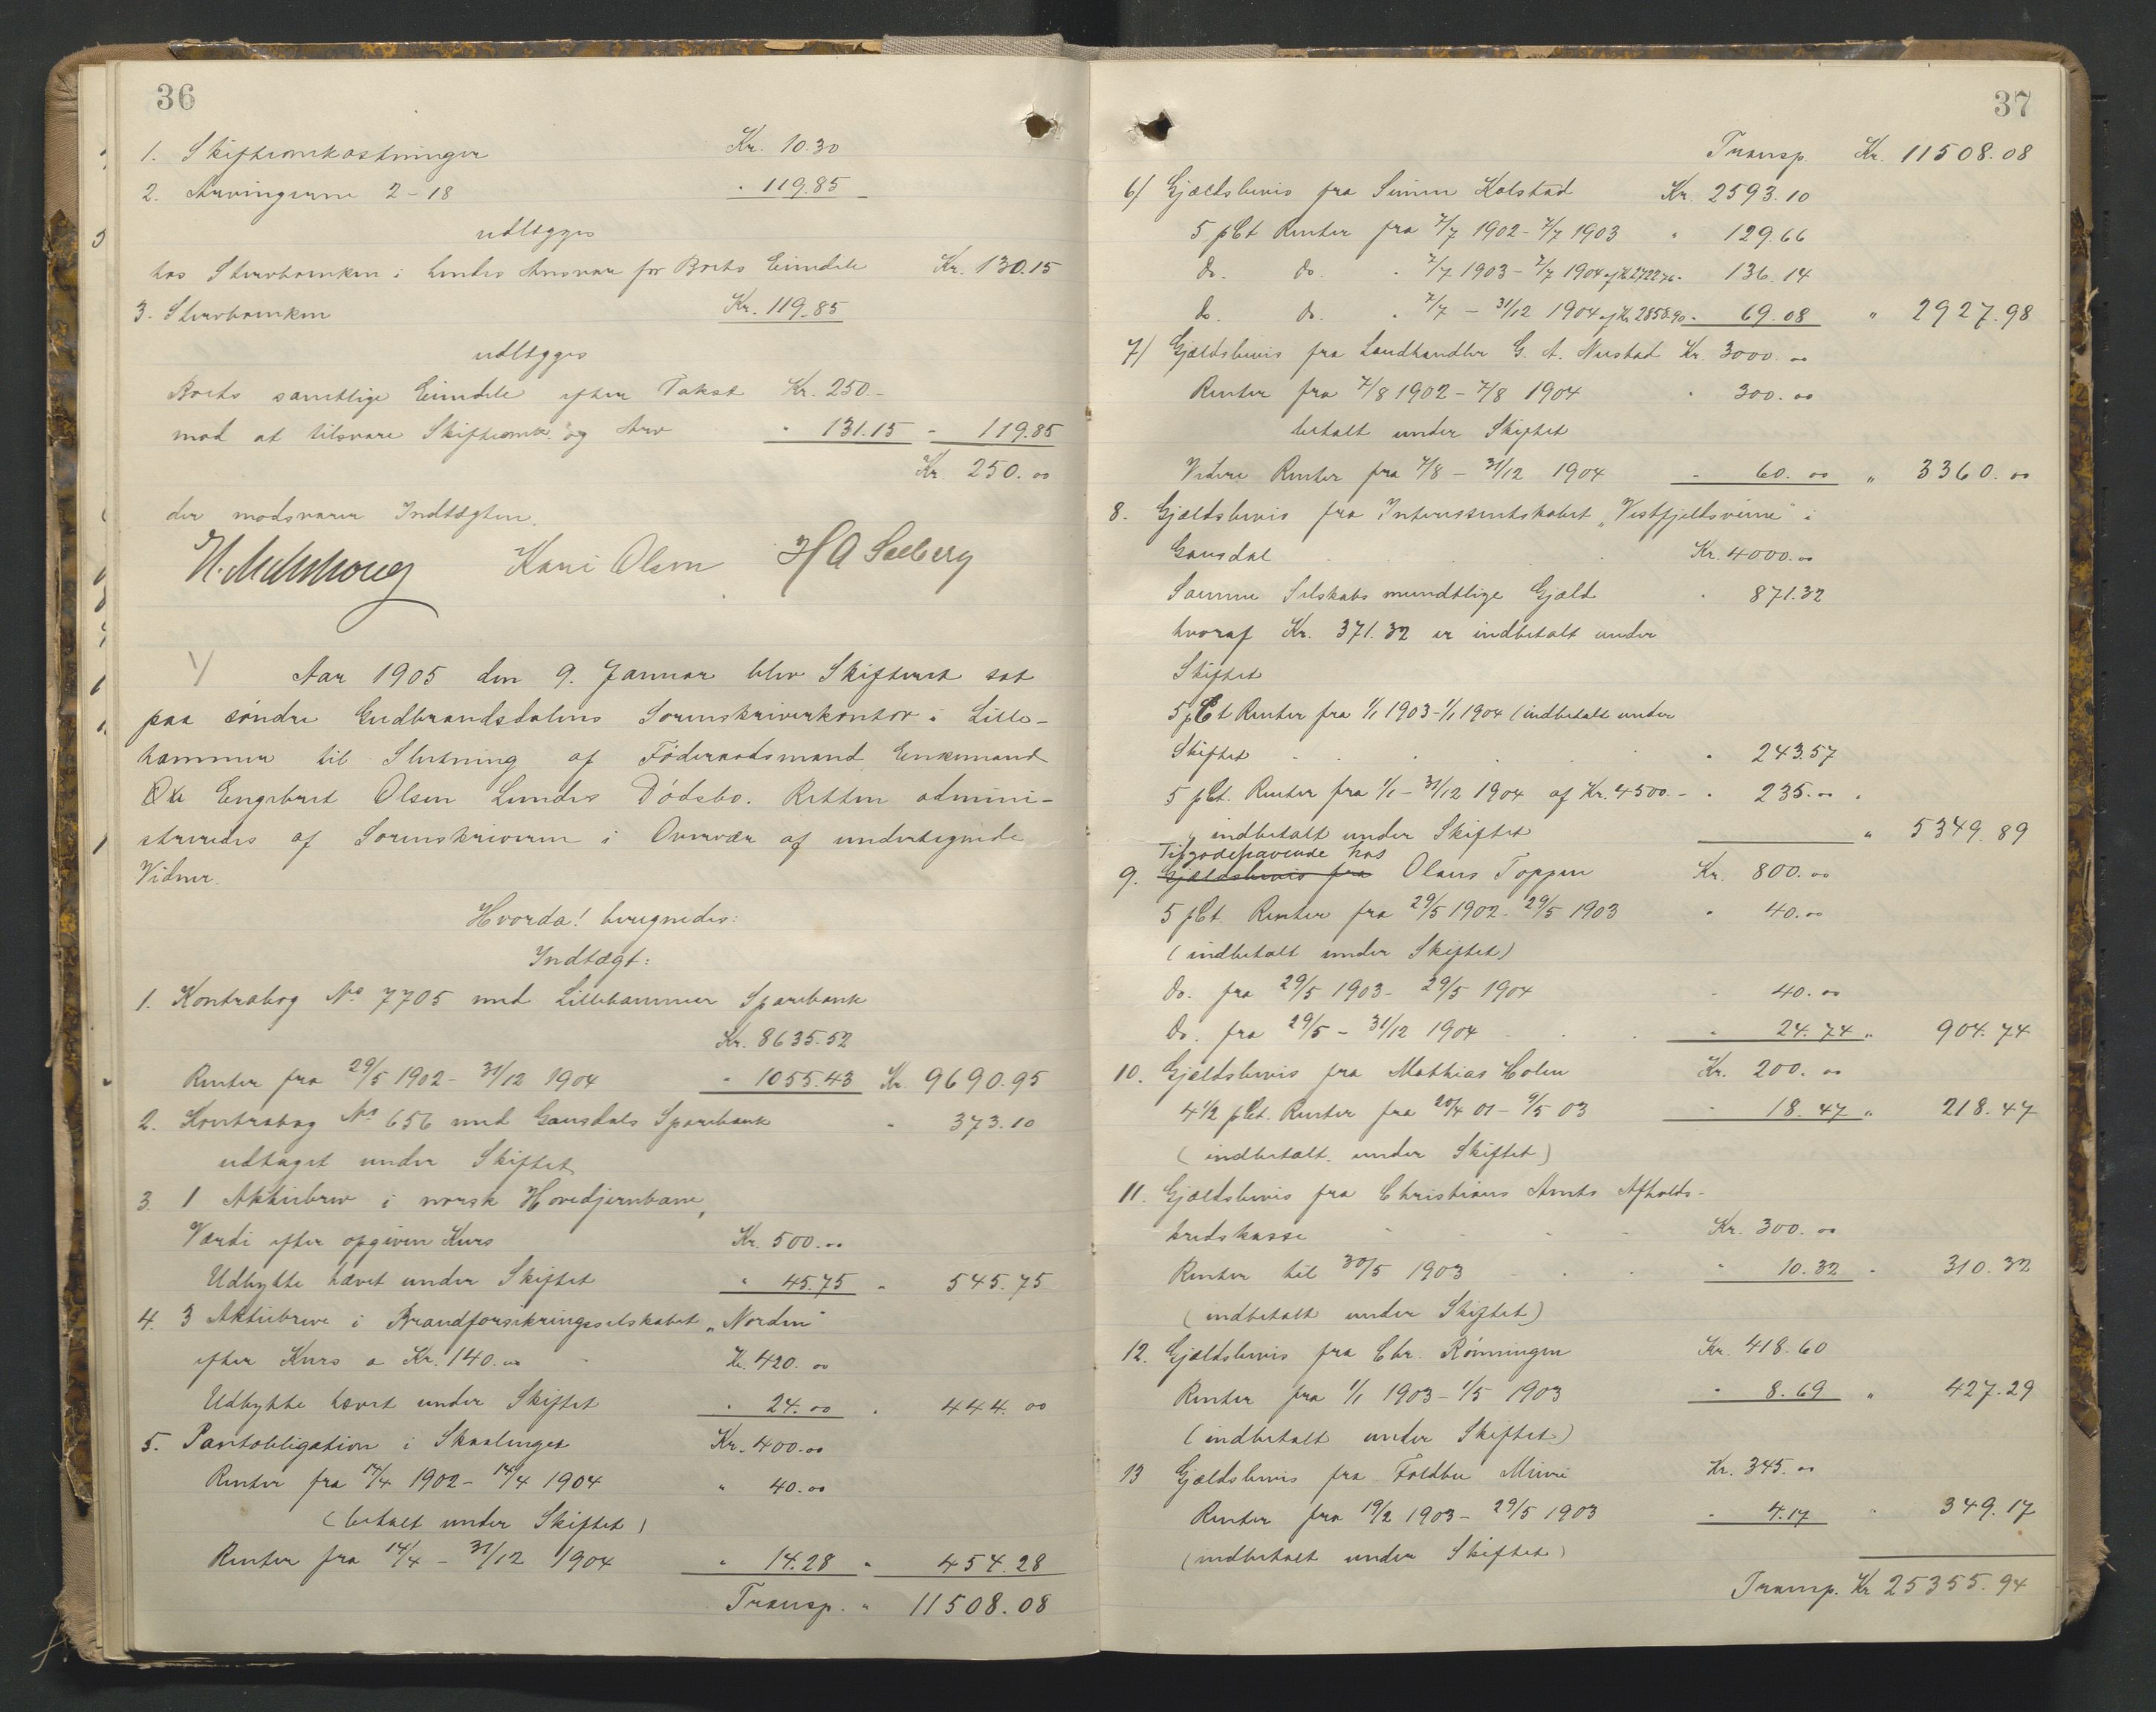 36
1. Skifteomkostninger Kr. 10.30
2. Arvingerne 2-18 " 119.85
udlægges
hos Stervboenken i hendes Ansvar for Boets Eiendele Kr. 130.15
3. Stervboenken Kr. 119.85
udlægges
Boets samtlige Eiendele efter Takst Kr. 250.-
mod at tilsvare Skifteomk. og Arv " 131.15 - 119.85
Kr. 250.00
der modsvarer Indtægten.
Kari Olsen H A Seeberg
Aar 1905 den 9. Januar blev Skifteret sat
paa søndre Gudbrandsdalens Sorenskriverkontor i Lille-
hammer til Slutning af Føderaadsmand Enkemand
Engebret Olsen Lundes Dødsbo. Retten admini-
streredes af Sorenskriveren i Overvær af undertegnede
Vidner.
Hvorda! beregnedes:
Indtægt:
1. Kontrabog No 7705 med Lillehammer Sparebank
Kr. 8635.52
Renter fra 29/5 1902 - 31/12 1904 " 1055.43 Kr. 9690.95
2. Kontrabog No 656 med Gausdals Sparebank " 373.10
udtaget under Skiftet
3. 1 Aktiebrev i norsk Hovedjernbane,
Værdi efter opgiven Kurs Kr. 500.00
Udbytte hævet under Skiftet " 45.75 " 545.75
4. 3 Aktiebreve i Brandforsikringsselskabet „Norden“
efter Kurs a Kr. 140.00 Kr. 420.00
Udbytte hævet under Skiftet " 24.00 " 444.00
5. Pantobligation i Skaalinget Kr. 400.00
Renter fra 14/4 1902 - 14/4 1904 " 40.00
(betalt under Skiftet)
Renter fra 14/4 - 31/12 1904 " 14.28 " 454.28
Transp. " 11508.08
37
Transp. Kr. 11508.08
6/ Gjældsbevis fra Simen Kolstad Kr. 2593.10
5 pCt Renter fra 7/7 1902 - 7/7 1903 " 129.66
do. do. " 7/7 1903 - 7/7 1904 af Kr. 2722.76 " 136.14
do. do. " 7/7 - 31/12 1904 af Kr. 2858.90 " 69.08 " 2927.98
7/ Gjældsbevis fra Landhandler G. A. Nustad Kr. 3000.00
Renter fra 7/8 1902 - 7/8 1904 " 300.00
betalt under Skiftet
Videre Renter fra 7/8 - 31/12 1904 " 60.00 " 3360.00
8. Gjældsbevis fra Interessentskabet „Vestfjeldsveiene“ i
Gausdal Kr. 4000.00
Samme Selskabs mundtlige Gjæld " 871.32
hvoraf Kr. 371.32 er indbetalt under
Skiftet
5 pCt Renter fra 1/1 1903 - 1/1 1904 (indbetalt under
Skiftet " 243.57
5 pCt. Renter fra 1/1 - 31/12 1904 af Kr. 4500.- " 235.00
indbetalt under Skiftet " 5349.89
Tilgodehavende hos
9. Gjældsbevis fra Olaus Toppen Kr. 800.00
5 pCt. Renter fra 29/5 1902 - 29/5 1903 " 40.00
(indbetalt under Skiftet)
Do. fra 29/5 1903 - 29/5 1904 " 40.00
Do. fra 29/5 - 31/12 1904 " 24.74 " 904.74
10. Gjældsbevis fra Mathias Holen Kr. 200.00
4 1/2 pCt. Renter fra 20/4 01 - 9/5 03 " 18.47 " 218.47
(indbetalt under Skiftet)
11. Gjældsbevis fra Christians Amts Afholds-
kredskasse Kr. 300.00
Renter til 30/5 1903 " 10.32 " 310.32
(indbetalt under Skiftet)
12. Gjældsbevis fra Chr. Rønningen Kr. 418.60
Renter fra 1/1 1903 - 1/5 1903 " 8.69 " 427.29
(indbetalt under Skiftet)
13 Gjældsbevis fra Foldbu Meieri Kr. 345.00
Renter fra 19/2 1903 - 29/5 1903 " 4.17 " 349.17
(indbetalt under Skiftet)
Transp. Kr. 25355.94